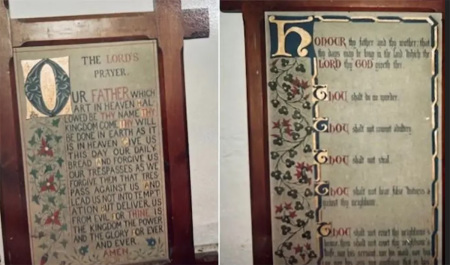 THE LORD'S
PRAYER.
OUR FATHER WHICH
ART IN HEAVEN HAL
LOWED BE THY NAME THY
KINGDOM COME THY WILL
BE DONE IN EARTH AS IT
IS IN HEAVEN GIVE US
THIS DAY OUR DAILY
BREAD AND FORGIVE US
OUR TRESPASSES AS WE
FORGIVE THEM THAT TRES
PASS AGAINST US AND
LEAD US NOT INTO TEMPT
ATION BUT DELIVER US
FROM EVIL FOR THINE IS
THE KINGDOM THE POWER
AND THE GLORY FOR EVER
AND EVER
AMEN.
HONOUR thy father and thy mother that
thy days may be long in the land which the
LORD thy GOD giveth thee.
Thou shalt do no murder.
Thou shalt not commit adultery.
Thou shalt not steal.
Thou shalt not bear false witness
against thy neighbour.
Thou shalt not covet thy neighbour's